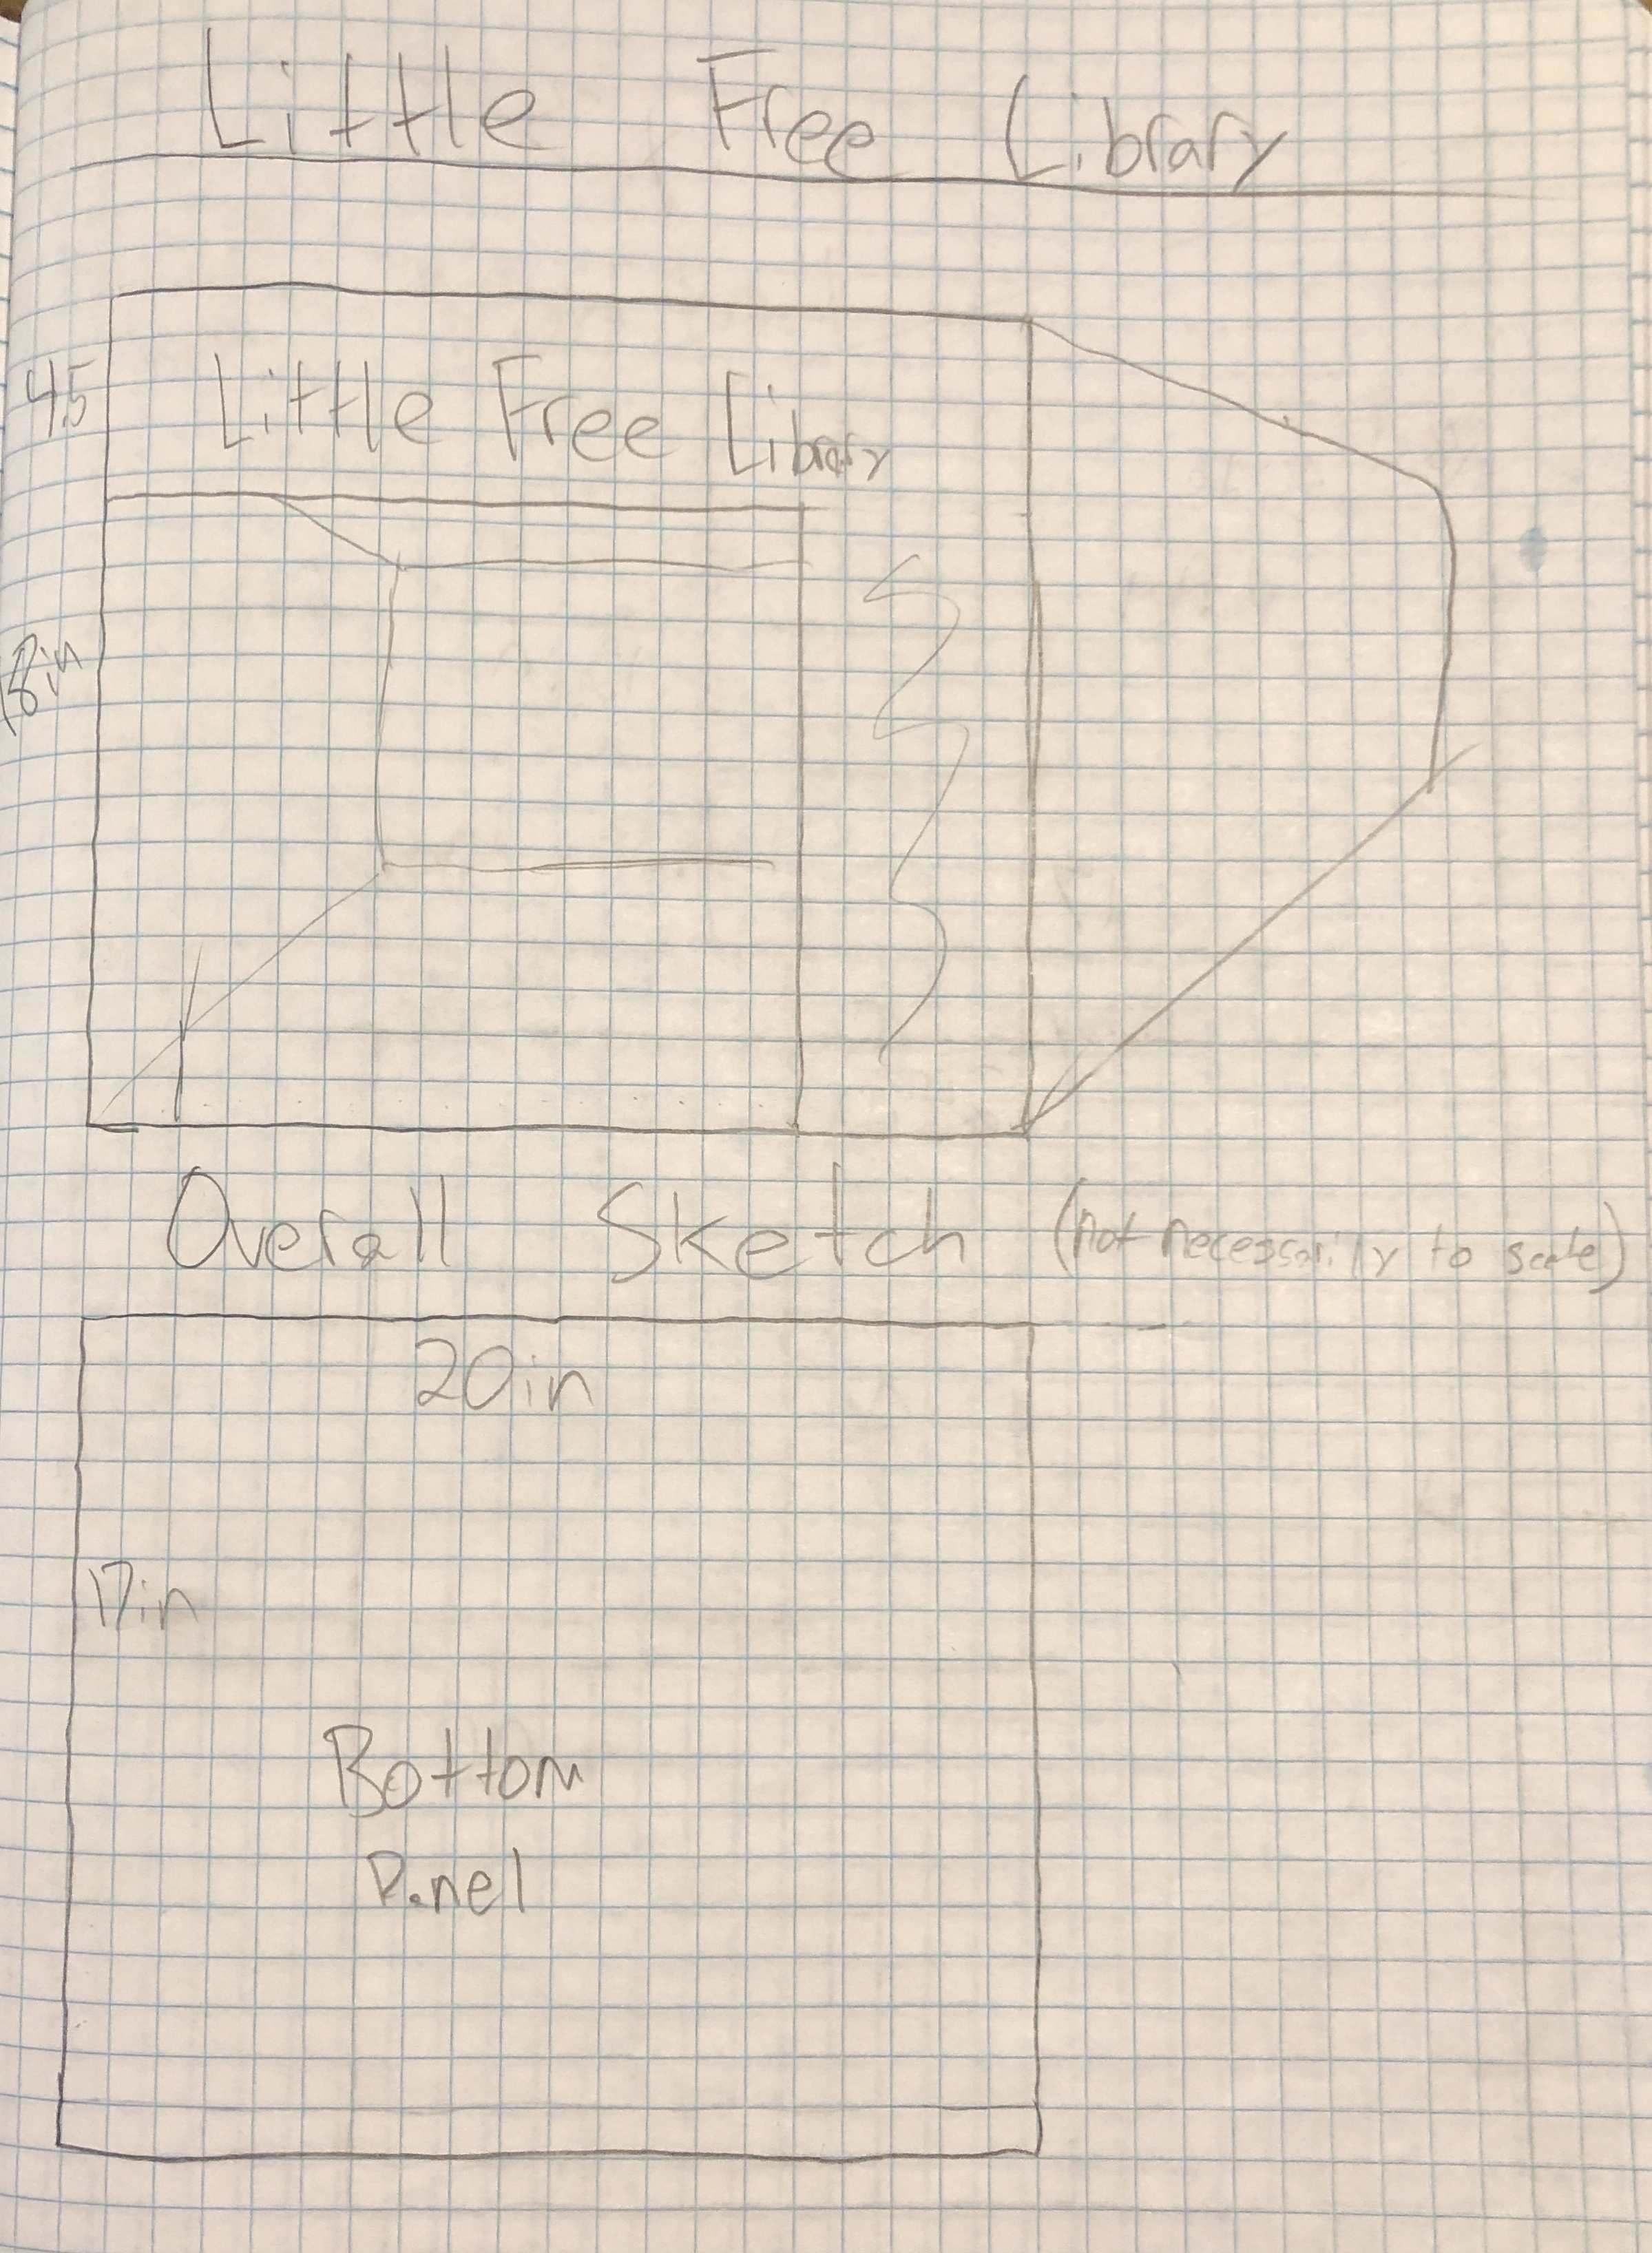 Little Free Library
4.5
Little Free Library
18in
Overall Sketch (not necessarily to scale)
20in
17in
Bottom
Panel